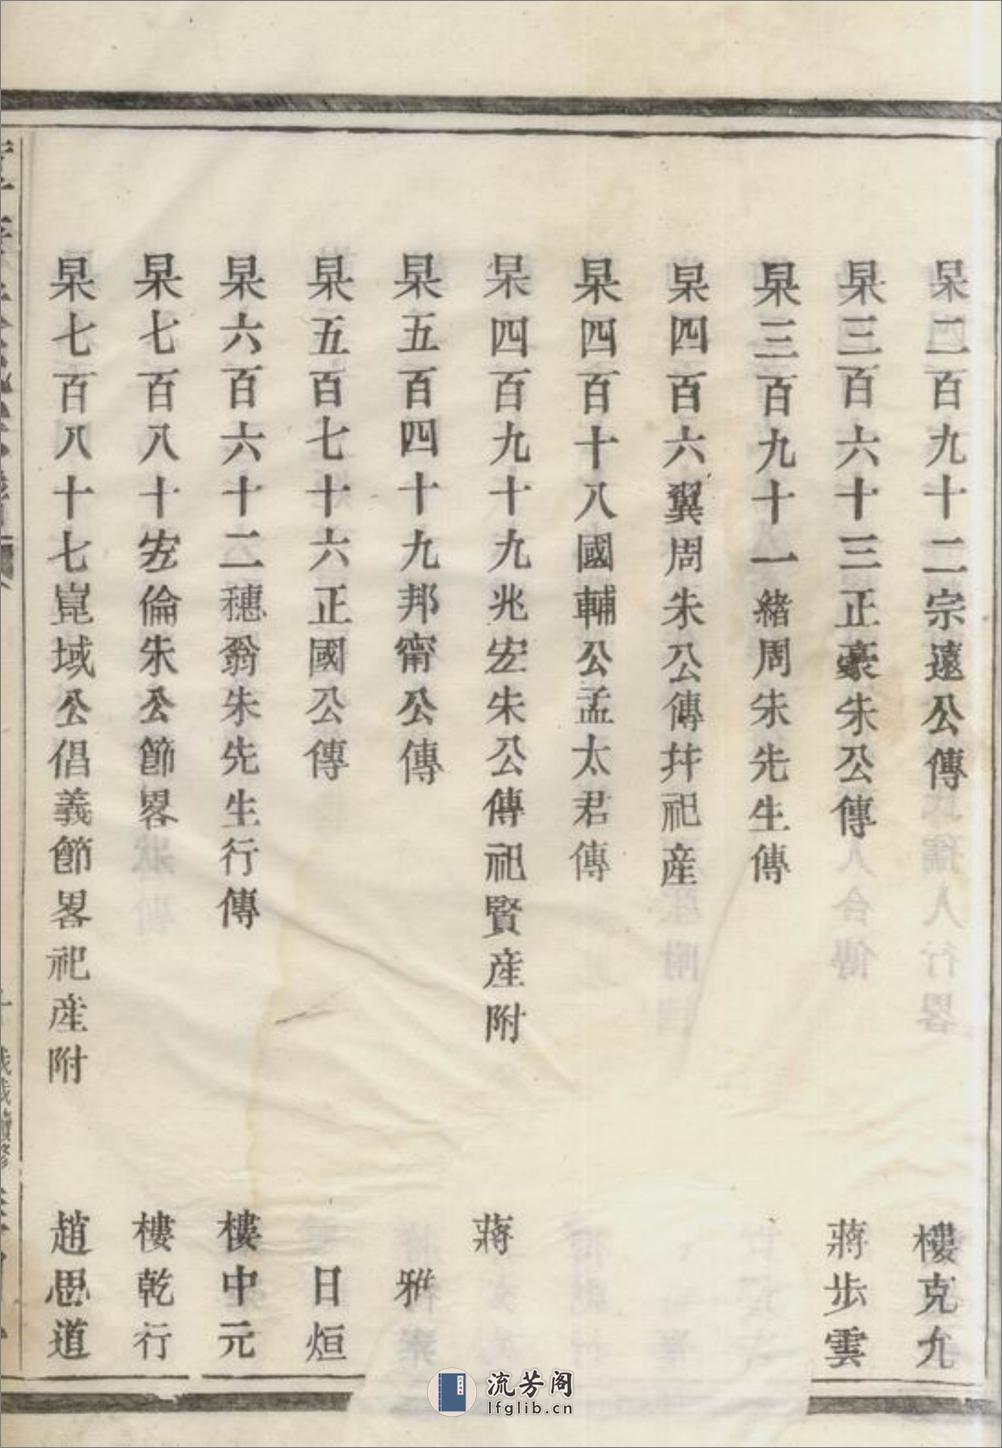 杲二百九十二宗遠公傳 樓克九
杲三百六十三正豪朱公傳 蔣步雲
杲三百九十一緒周朱先生傳
杲四百六翼周朱公傳幷祀產
杲四百十八國輔公孟太君傳
杲四百九十九兆宏朱公傳祀賢產附 蔣
杲五百四十九邦甯公傳 雅
杲五百七十六正國公傳 日烜
杲六百六十二穗翁朱先生行傳 樓中元
杲七百八十宏倫朱公節畧 樓乾行
杲七百八十七崑域公倡義節畧祀產附 趙思道
流芳阁
lfglib.cn